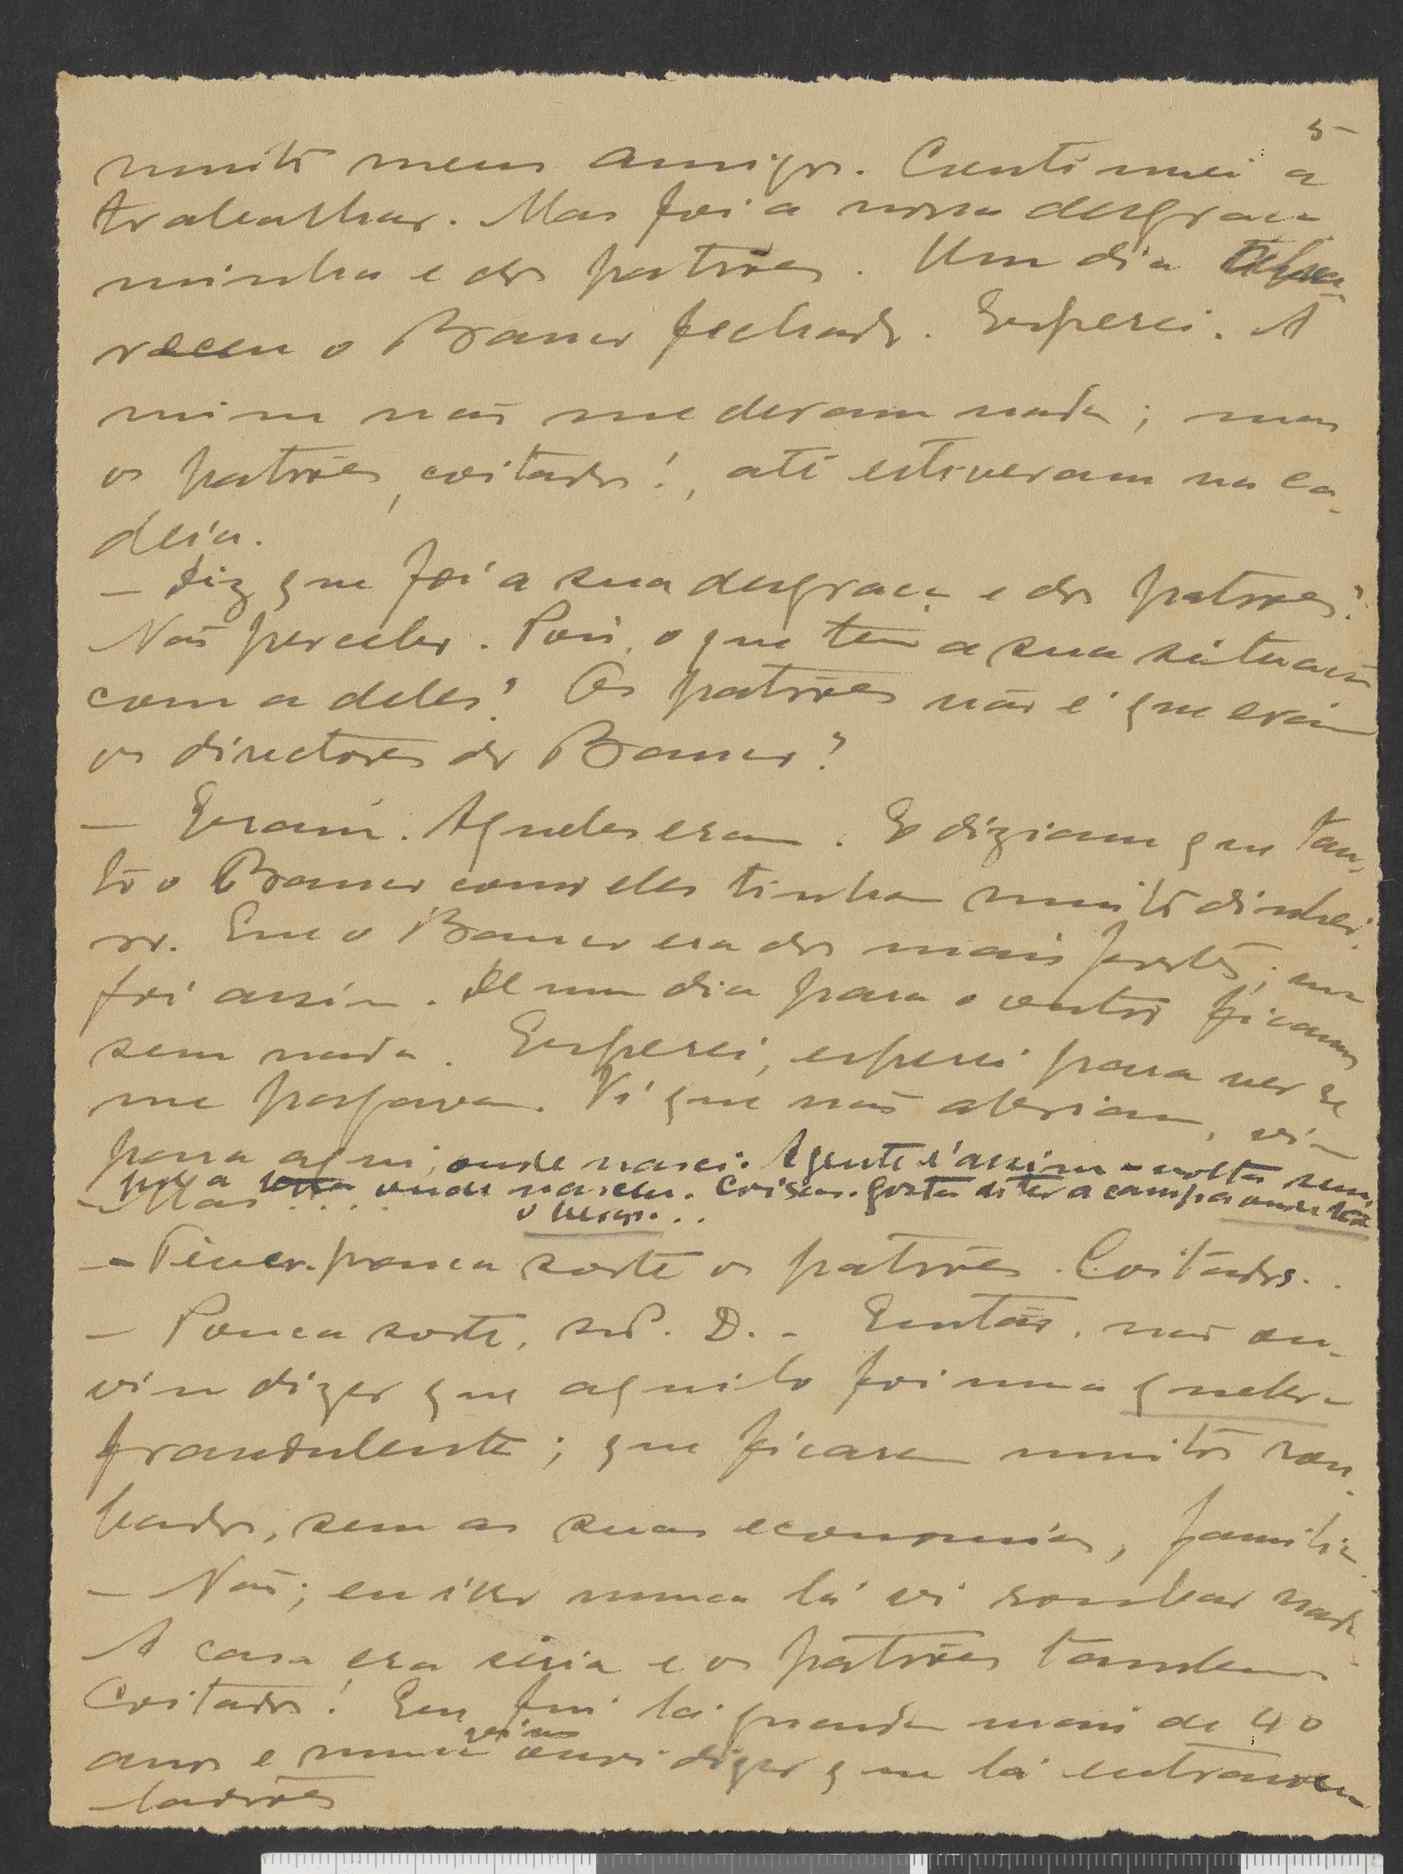 5
muito meus amigos. Continuei a
trabalhar. Mas foi a nossa desgraça
minha e dos patrões. Um dia apa-
receu o Banco fechado. Esperei. A
mim não me deram nada; mas
os patrões, coitados!, até estiveram na ca-
deia.
— Diz que foi a sua desgraça e dos patrões?
Não percebo. Pois, o que tem a sua situação
com a deles? Os patrões não é que eram
os directores do Banco?
— Eram. Aqueles eram. E diziam que tan-
to o Banco como eles tinham muito dinhei-
ro. E que o Banco era dos mais fortes; mas
foi assim. De um dia para o outro ficaram
sem nada. Esperei, esperei para ver se
me pagavam. Vi que não abriam, vim
para aqui, onde nasci. A gente é assim – volta sem-
pre a onde nasceu. Coisas. Gosta de ter a campa onde
o berço...
— Mas....
— Tiveram pouca sorte os patrões. Coitados..
— Pouca sorte, sr. D. – Então, não ou-
viu dizer que aquilo foi uma quebra
fraudulenta; que ficaram muitos rou-
bados, sem as suas economias, famílias
— Não; eu isso nunca lá vi roubar nada.
A casa era séria e os patrões também
Coitados! Eu fui lá guarda mais de 40
anos e nunca vi nem ouvi dizer que lá entrassem
ladrões